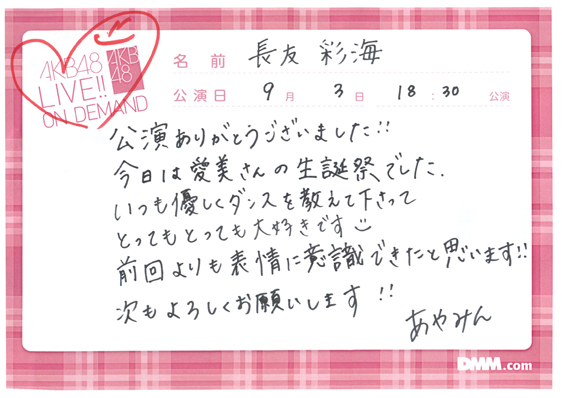 AKB48
LIVE!!
ON DEMAND
AKB
48
名前 長友 彩海
公演日 9月 3日 18:30 公演
公演ありがとうございました!!
今日は愛美さんの生誕祭でした.
いつも優しくダンスを教えて下さって
とってもとっても大好きです
前回よりも表情に意識できたと思います!!
次もよろしくお願いします !!
あやみん
DMM.com